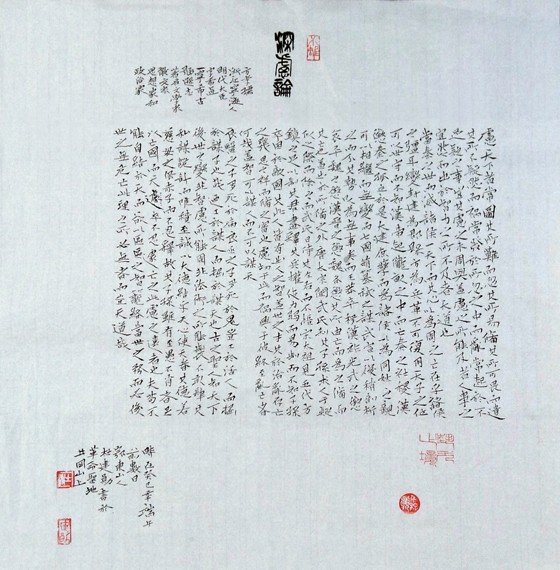 深慮論
方孝孺
浙江寧海人
明代大臣
字希直
一字希古
號遜志
著名文學家
散文家
思想家和
政治家
慮天下者常圖其所難而忽其所易備其所可畏而遺
其所不疑然而禍常發於所忽之中而亂常起於不
足疑之事豈其慮之未周與蓋慮之所能及者人事之
宜然而出於智力之所不及者天道也
當秦之世而滅諸侯一天下而其心以為周之亡在乎諸侯
之強耳變封建而為郡縣方以為兵革不可復用天子之位
可以世守而不知漢帝起隴畝之中而亡秦之社稷漢
懲秦之孤立於是大建庶孽而為諸侯以為同姓之親
可以相繼而無變而七國萌篡弒之謀武宣以後稍剖析
之而分其勢以為無事矣而王莽卒移漢祚光武之懲
哀平魏之懲漢晉之懲魏各懲其所由亡而為之備而
其亡也蓋出於所備之外唐太宗聞武氏之殺其子孫求人於疑
似之際而除之而武氏日侍其左右而不悟宋太祖見五代方
鎮之足以制其君盡釋其兵權使力弱而易制而不知子孫
卒困於敵國此其人皆有出人之智蓋世之才其於治亂存亡
之幾思之詳而備之審矣慮切於此而禍興於彼終至亂亡者
何哉蓋智可以謀人而不可以謀天
良醫之子多死於病良巫之子多死於鬼豈工於活人而拙
於謀子也哉乃工於謀人而拙於謀天也古之聖人知天下
後世之變非智慮之所能周非法術之所能制不敢肆其
私謀詭計而唯積至誠用大德以結乎天心使天眷其德若
慈母之保赤子而不忍釋故其子孫雖有至愚不肖者足
以亡國而天卒不忍遽亡之此慮之遠者也夫苟不
能自結於天而欲以區區之智籠絡當世之務而必後
世之無危亡此理之所必無者而豈天道哉
時在癸巳年端午
前數日
東山人
杜建勛書於
革命聖地
井岡山上